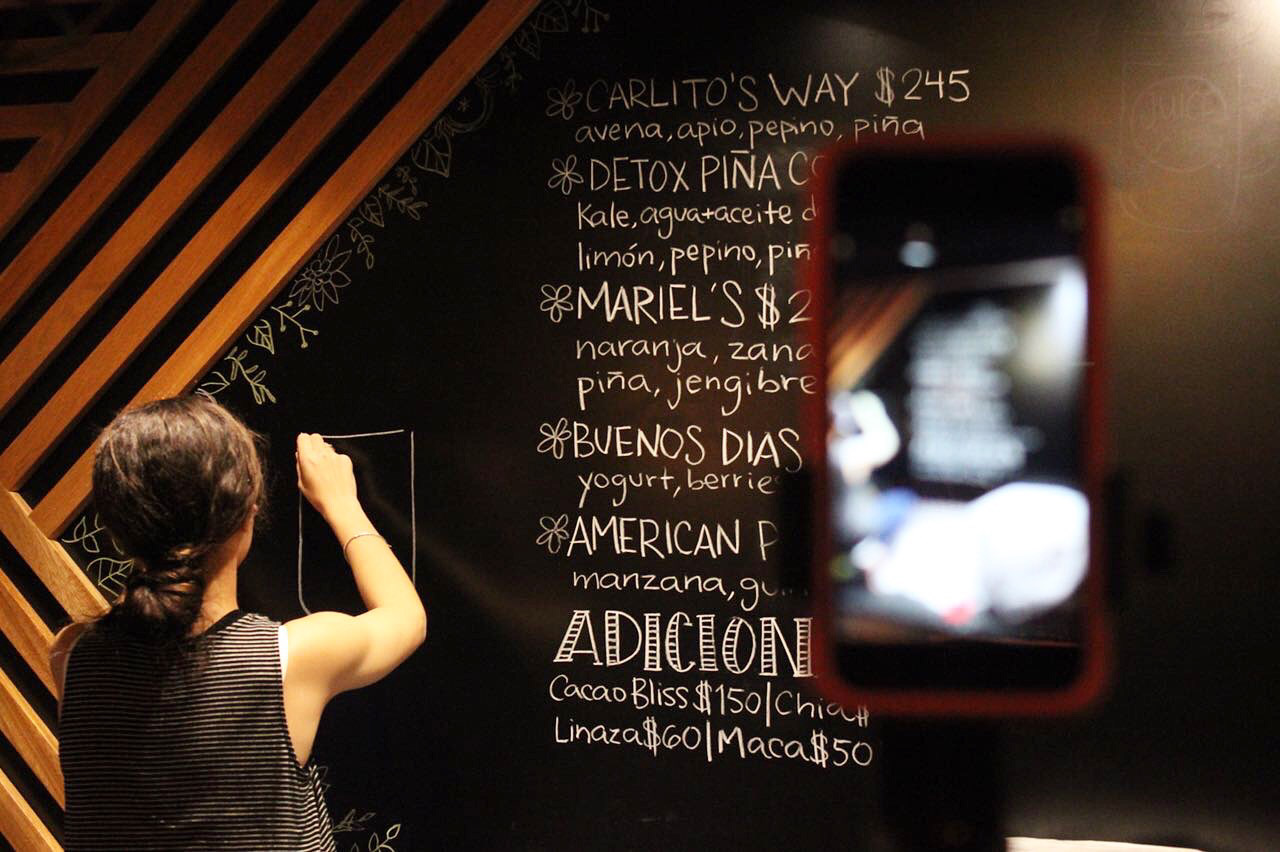 CARLITO'S WAY $245
avena, apio, pepino, piña
DETOX PIÑA
Kale, agua+aceite
limón, pepino,
MARIEL'S
naranja,
piña, jengibre
BUENOS DIAS
yogurt,
AMERICAN
manzana,
Cacao Bliss $150 | Chia
Linaza $60 | Maca $50
JUICE